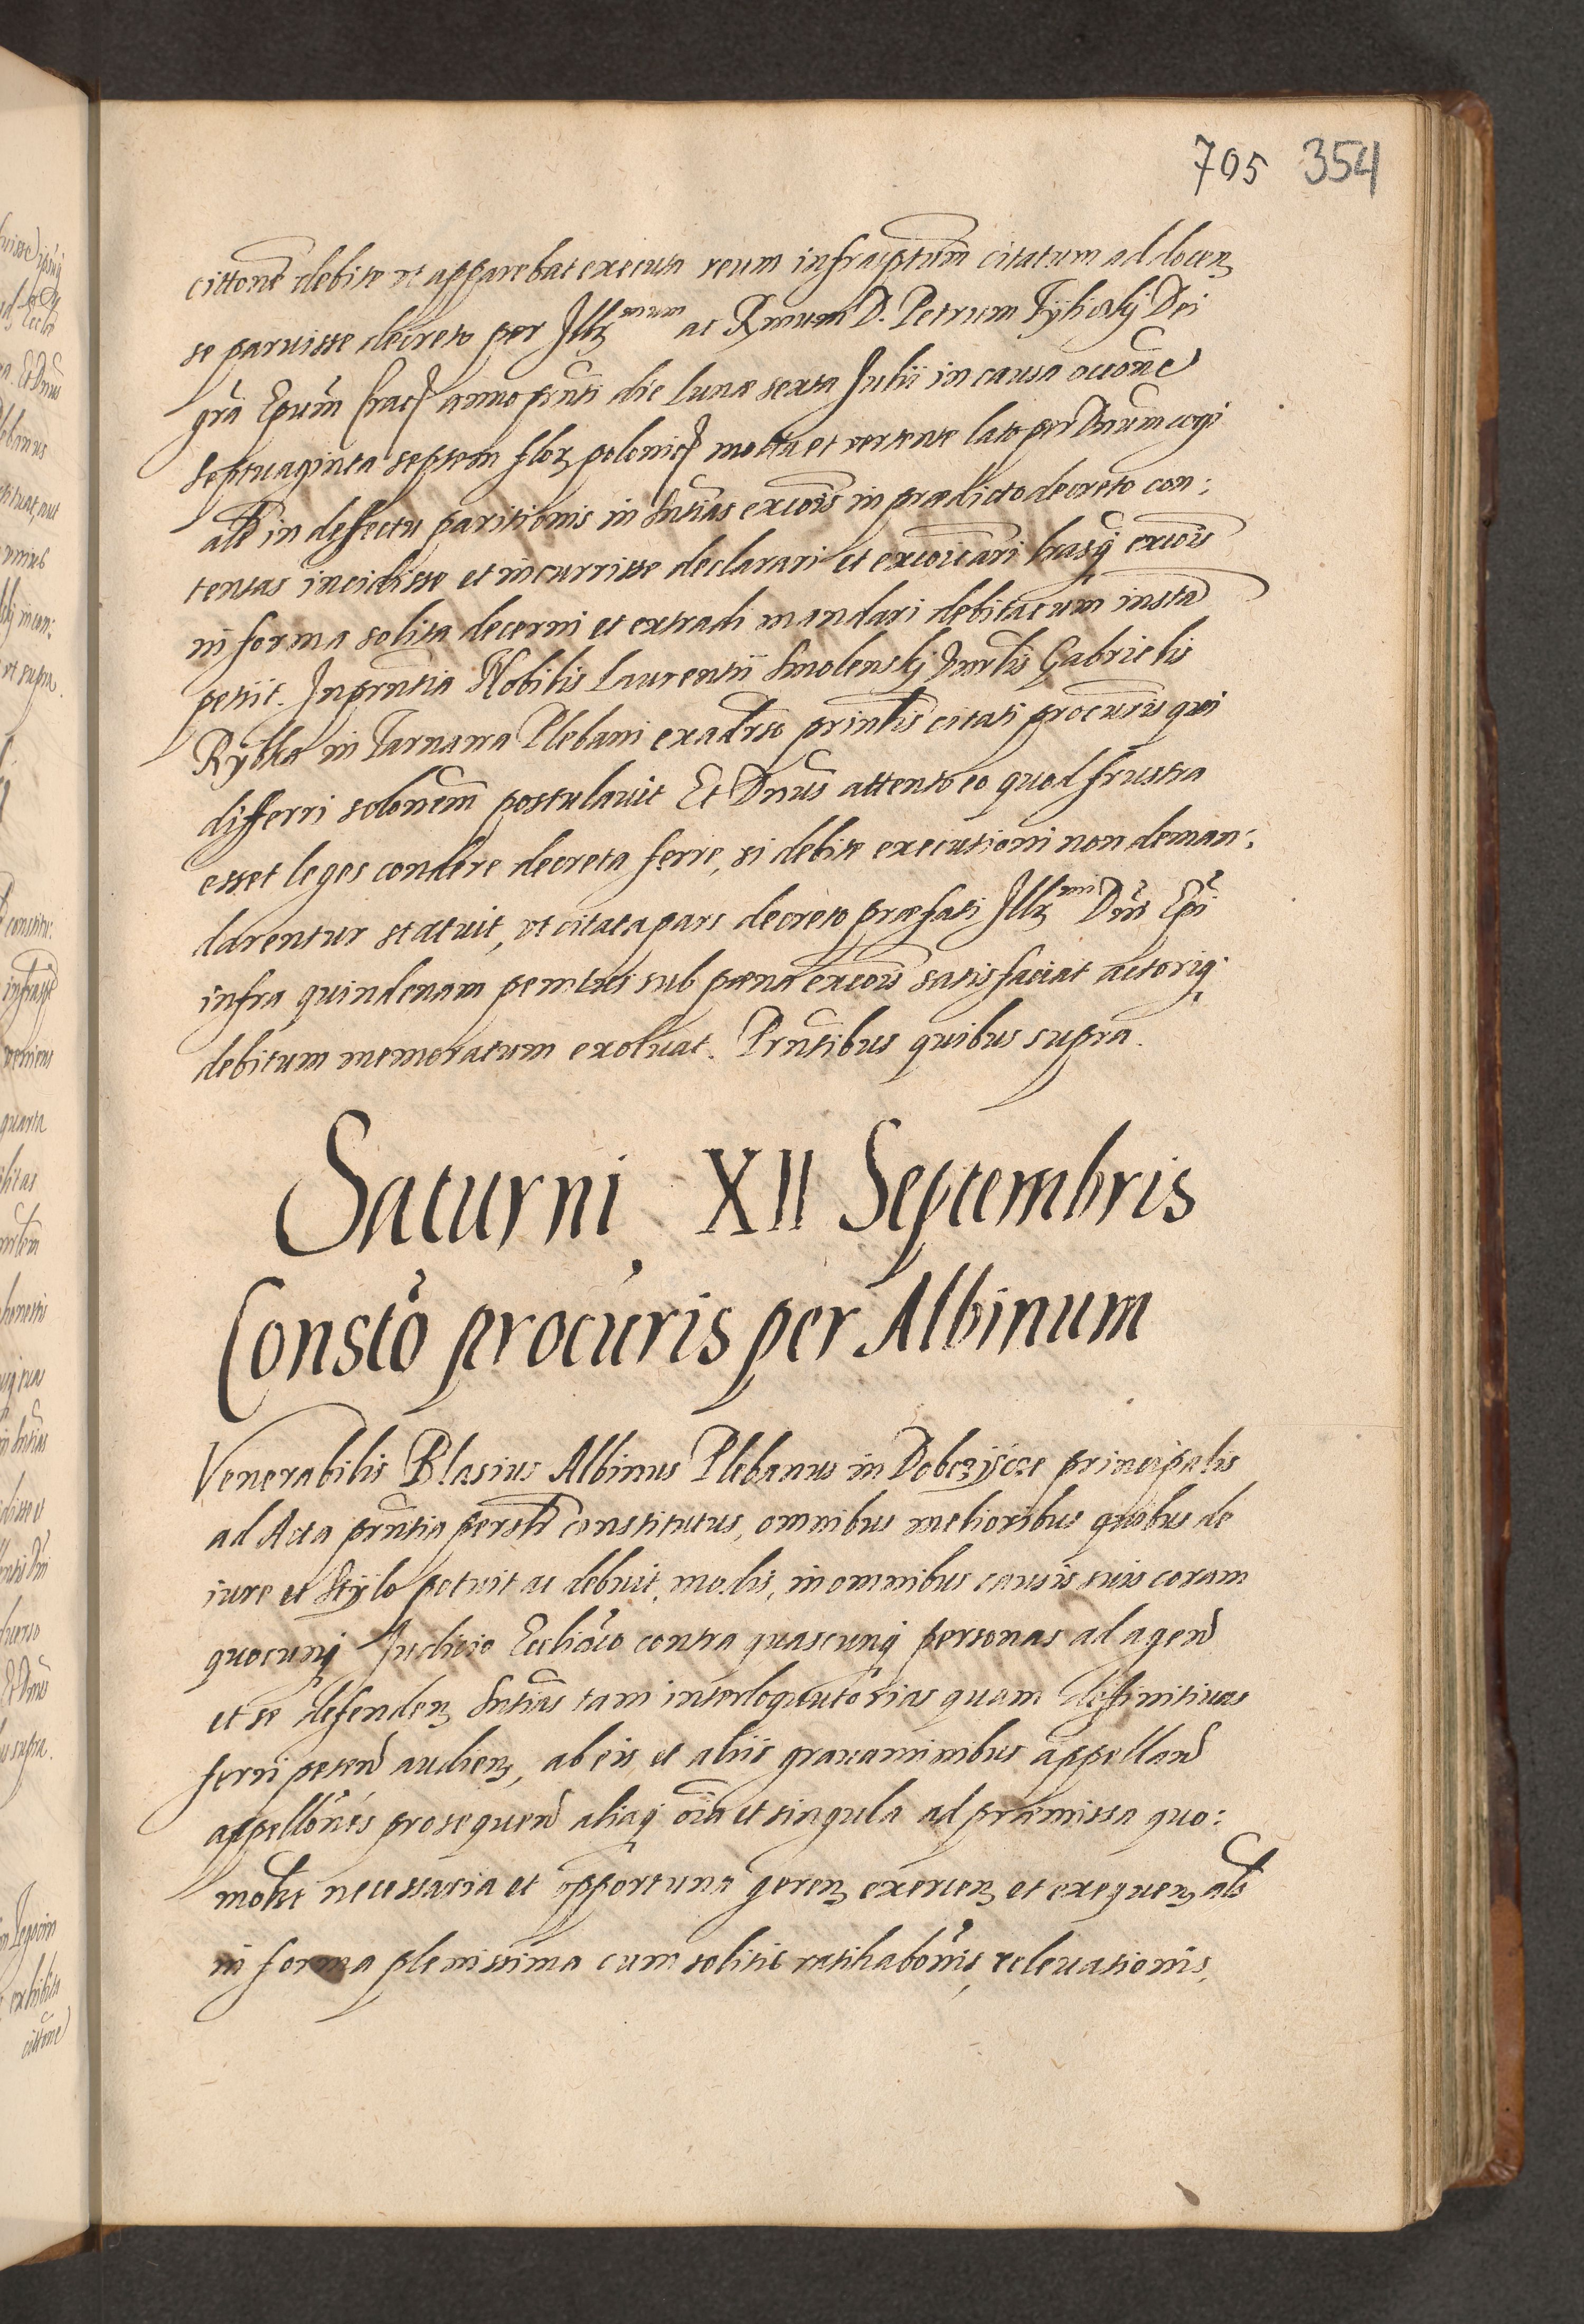 705 354
cittone debite ut apparebat executa reum infrascriptum citatum ad docen
se paruisse decreto per Illrmum ac Rmum D. Petrum Tylicky Dei
gra Epum Crac anno prnti die Lunæ sexta Julii in causa occone
septuaginta septem flor polonic mota et vertente lato per Dnum cogi
als in deffectu paritionis in sntias excois in prædicto decreto con:
tentas incidisse et incurrisse declarari et excoicari lrasq excois
in forma solita decerni et extradi mandari debita cum insta
petiit. In prntia Nobilis Laurentii Smolensky Gabrielis
Rybka in Tarnawa Plebani ex adrso prinlis citati procuris qui
differri solonem postulavit Et Dnus attento eo quod frustra
esset leges condere decreta ferre, si debite executioni non deman:
darentur statuit, ut citata pars decreto præfati Illrmi Dni Epi
infra quindenam sub pæna excois satisfaciat actoriq
debitum memoratum exoluat. Prntibus quibus supra.
Saturni XII Septembris
Constō procuris per Albinum
Venerabilis Blasius Albinus Plebanus in Dobczyce principalis
ad Acta prntia persolr constitutus, omnibus melioribus quibus de
iure et Stylo potuit ac debuit, modis, in omnibus causis suis coram
quocunq Judicio Ecclico contra quascunq personas ad agend
et se defenden sntias tam interloquutorias quam deffinitivas
ferri petend audien, ab eis et aliis gravaminibus appelland
appellones prosequend aliaq oia et singula ad præmissa quo:
molt necessaria et opportuna geren exercen et exequen als
in forma plenissima cum solitis ratihabonis, relevationis,